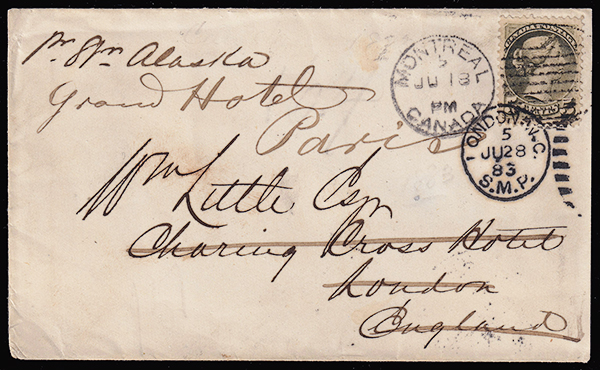 pr Str Alaska
Grand Hotel
Paris
Wm Little Esqr
Charing Cross Hotel
London
England
MONTREAL
5
JU 18
PM
CANADA
CANADA POSTAGE
CENTS
LONDON W.C.
5
JU28
83
S.M.P.